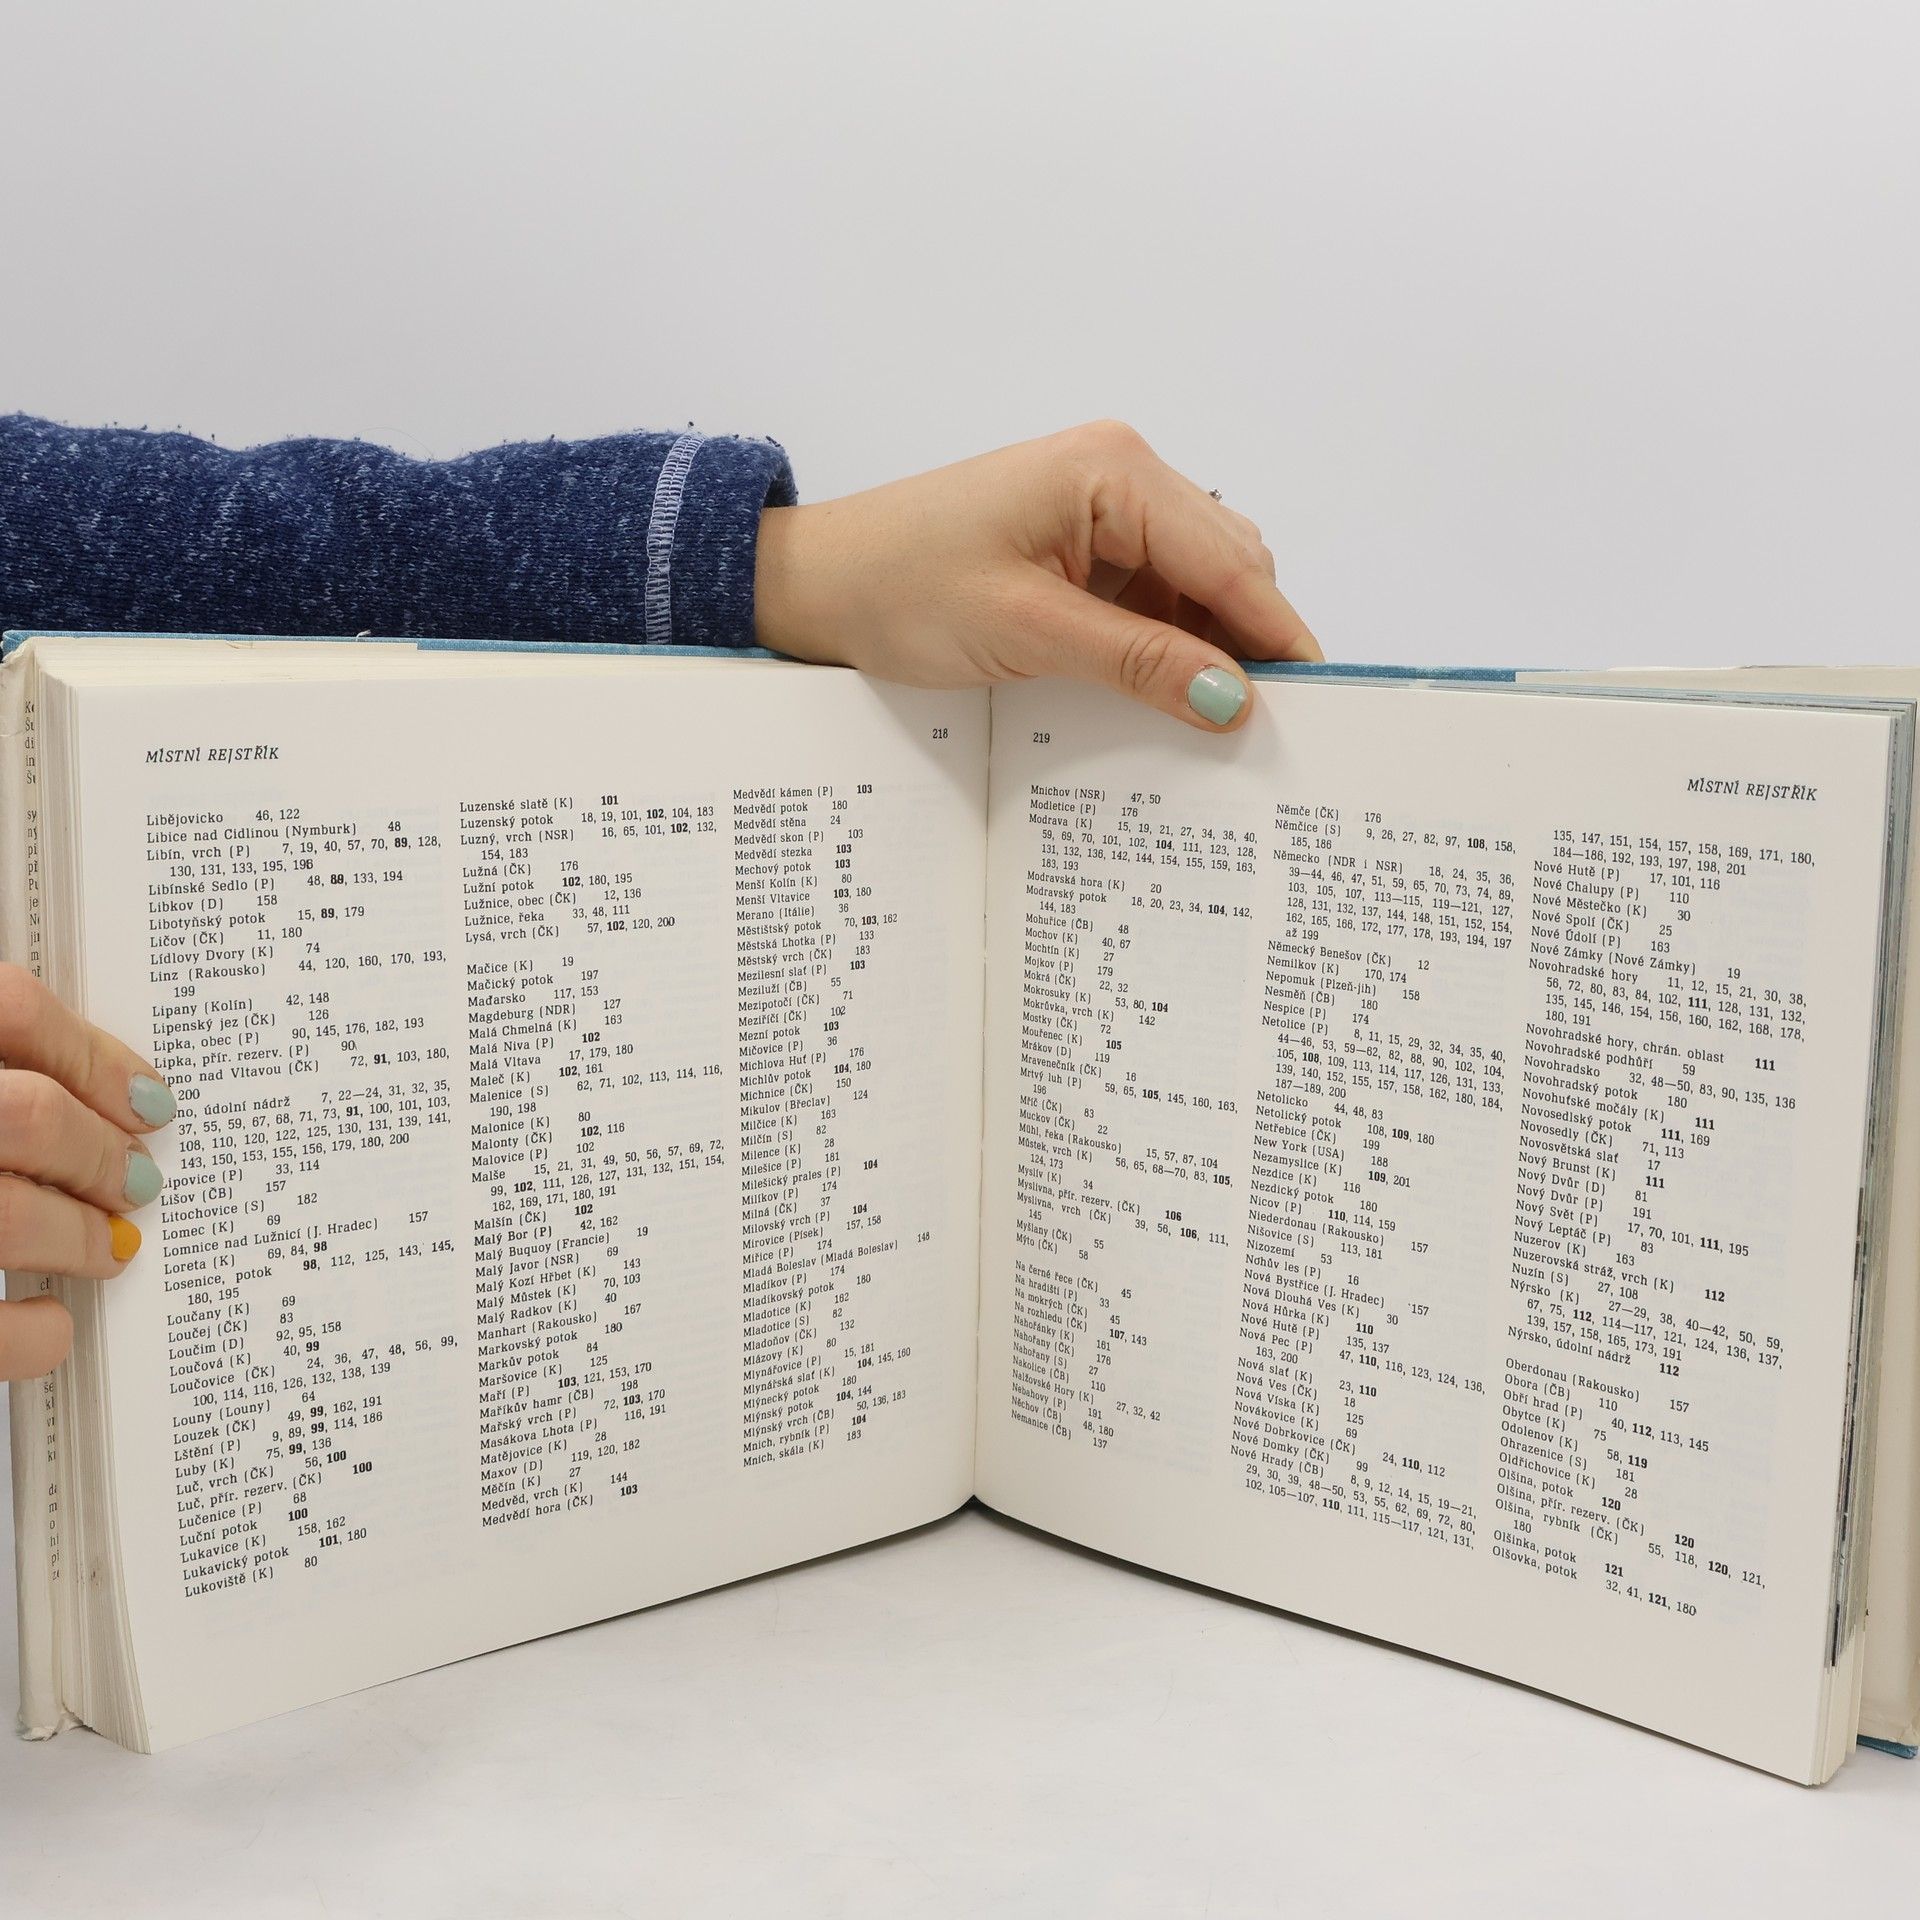 MÍSTNÍ REJSTŘÍK
218
Libějovicko 46, 122
Libice nad Cidlinou (Nymburk) 48
Libín, vrch (P) 7, 19, 40, 57, 70, 89, 128,
130, 131, 133, 195, 196
Libínské Sedlo (P) 48, 89, 133, 194
Libkov (D) 158
Libotyňský potok 15, 89, 179
Ličov (ČK) 11, 180
Lídlovy Dvory (K) 74
Linz (Rakousko) 44, 120, 160, 170, 193,
199
Lipany (Kolín) 42, 148
Lipenský jez (ČK) 126
Lipka, obec (P) 90, 145, 176, 182, 193
Lipka, přír. rezerv. (P) 90
ipno nad Vltavou (ČK) 72, 91, 103, 180,
200
no, údolní nádrž 7, 22—24, 31, 32, 35,
37, 55, 59, 67, 68, 71, 73, 91, 100, 101, 103,
108, 110, 120, 122, 125, 130, 131, 139, 141,
143, 150, 153, 155, 156, 179, 180, 200
Lipovice (P) 33, 114
Lišov (ČB) 157
Litochovice (S) 182
Lomec (K) 69
Lomnice nad Lužnicí (J. Hradec) 157
Loreta (K) 69, 84, 98
Losenice, potok 98, 112, 125, 143, 145,
180, 195
Loučany (K) 69
Loučej (ČK) 83
Loučim (D) 92, 95, 158
Loučová (K) 40, 99
Loučovice (ČK) 24, 36, 47, 48, 56, 99,
100, 114, 116, 126, 132, 138, 139
Louny (Louny) 64
Louzek (ČK) 49, 99, 162, 191
Lštění (P) 9, 89, 99, 114, 186
Luby (K) 75, 99, 136
Luč, vrch (ČK) 56, 100
Luč, přír. rezerv. (ČK) 100
Lučenice (P) 68
Luční potok 100
Lukavice (K) 158, 162
Lukavický potok 101, 180
Lukoviště (K) 80
Luzenské slatě (K) 101
Luzenský potok 18, 19, 101, 102, 104, 183
Luzný, vrch (NSR) 16, 65, 101, 102, 132,
154, 183
Lužná (ČK) 176
Lužní potok 102, 180, 195
Lužnice, obec (ČK) 12, 136
Lužnice, řeka 33, 48, 111
Lysá, vrch (ČK) 57, 102, 120, 200
Mačice (K) 19
Mačický potok 197
Maďarsko 117, 153
Magdeburg (NDR) 127
Malá Chmelná (K) 163
Malá Niva (P) 102
Malá Vltava 17, 179, 180
Maleč (K) 102, 161
Malenice (S) 62, 71, 102, 113, 114, 116,
190, 198
Malonice (K) 80
Malonty (ČK) 102, 116
Malovice (P) 102
Malše 15, 21, 31, 49, 50, 56, 57, 69, 72,
99, 102, 111, 126, 127, 131, 132, 151, 154,
162, 169, 171, 180, 191
Malšín (ČK) 102
Malý Bor (P) 42, 162
Malý Buquoy (Francie) 19
Malý Javor (NSR) 69
Malý Kozí Hřbet (K) 143
Malý Můstek (K) 70, 103
Malý Radkov (K) 40
Manhart (Rakousko) 167
Markovský potok 180
Markův potok 84
Maršovice (K) 125
Maří (P) 103, 121, 153, 170
Maříkův hamr (ČB) 198
Mařský vrch (P) 72, 103, 170
Masákova Lhota (P) 116, 191
Matějovice (K) 28
Maxov (D) 119, 120, 182
Měčín (K) 27
Medvěd, vrch (K) 144
Medvědí hora (ČK) 103
Medvědí kámen (P) 103
Medvědí potok 180
Medvědí stěna 24
Medvědí skon (P) 103
Medvědí stezka 103
Mechový potok 103
Menší Kolín (K) 80
Menší Vltavice 103, 180
Merano (Itálie) 36
Městištský potok 70, 103, 162
Městská Lhotka (P) 133
Městský vrch (ČK) 183
Mezilesní slať (P) 103
Meziluží (ČB) 55
Mezipotočí (ČK) 71
Meziříčí (ČK) 102
Mezní potok 103
Mičovice (P) 36
Michlova Huť (P) 176
Michlův potok 104, 180
Michnice (ČK) 150
Mikulov (Břeclav) 124
Milčice (K) 163
Milčín (S) 82
Milence (K) 28
Milešice (P) 181
Milešický prales (P) 104
Milíkov (P) 174
Milná (ČK) 37
Milovský vrch (P) 104
Mirovice (Písek) 157, 158
Miřice (P) 174
Mladá Boleslav (Mladá Boleslav) 148
Mladíkov (P) 174
Mladíkovský potok 180
Mladotice (K) 162
Mladotice (S) 82
Mladoňov (ČK) 132
Mlázovy (K) 80
Mlynářovice (P) 15, 181
Mlynářská slať (K) 104, 145, 160
Mlýnecký potok 180
Mlýnský potok 104, 144
Mlýnský vrch (ČB) 50, 136, 183
Mnich, rybník (P) 104
Mnich, skála (K) 183
219
MÍSTNÍ REJSTŘÍK
Mnichov (NSR) 47, 50
Modletice (P) 176
Modrava (K) 15, 19, 21, 27, 34, 38, 40,
59, 69, 70, 101, 102, 104, 111, 123, 128,
131, 132, 136, 142, 144, 154, 155, 159, 163,
183, 193
Modravská hora (K) 20
Modravský potok 18, 20, 23, 34, 104, 142,
144, 183
Mohuřice (ČB) 48
Mochov (K) 40, 67
Mochtín (K) 27
Mojkov (P) 179
Mokrá (ČK) 22, 32
Mokrosuky (K) 53, 80, 104
Mokrůvka, vrch (K) 142
Mostky (ČK) 72
Mouřenec (K) 105
Mrákov (D) 119
Mravenečník (ČK) 16
Mrtvý luh (P) 59, 65, 105, 145, 160, 163,
196
Mříč (ČK) 83
Muckov (ČK) 22
Mühl, řeka (Rakousko) 15, 57, 87, 104
Můstek, vrch (K) 56, 65, 68—70, 83, 105,
124, 173
Myslív (K) 34
Myslivna, přír. rezerv. (ČK) 106
Myslivna, vrch (ČK) 39, 56, 106, 111,
145
Myšlany (ČK) 55
Mýto (ČK) 58
Na černé řece (ČK) 45
Na hradišti (P) 33
Na mokrých (ČK) 45
Na rozhledu (ČK) 107, 143
Nahořánky (K) 161
Nahořany (ČK) 176
Nahořany (S) 27
Nakolice (ČB) 110
Nalžovské Hory (K) 27, 32, 42
Nebahovy (P) 191
Něchov (ČB) 48, 180
Nemanice (ČB) 137
Němče (ČK) 176
Němčice (S) 9, 26, 27, 82, 97, 108, 158,
185, 186
Německo (NDR i NSR) 18, 24, 35, 36,
39—44, 46, 47, 51, 59, 65, 70, 73, 74, 89,
103, 105, 107, 113—115, 119—121, 127,
128, 131, 132, 137, 144, 148, 151, 152, 154,
162, 165, 166, 172, 177, 178, 193, 194, 197
až 199
Německý Benešov (ČK) 12
Nemilkov (K) 170, 174
Nepomuk (Plzeň-jih) 158
Nesměň (ČB) 180
Nespice (P) 174
Netolice (P) 8, 11, 15, 29, 32, 34, 35, 40,
44—46, 53, 59—62, 82, 88, 90, 102, 104,
105, 108, 109, 113, 114, 117, 126, 131, 133,
139, 140, 152, 155, 157, 158, 162, 180, 184,
187—189, 200
Netolicko 44, 48, 83
Netolický potok 108, 109, 180
Netřebice (ČK) 199
New York (USA) 188
Nezamyslice (K) 109, 201
Nezdice (K) 116
Nezdický potok 180
Nicov (P) 110, 114, 159
Niederdonau (Rakousko) 157
Nišovice (S) 113, 181
Nizozemí 53
Nohův les (P) 16
Nová Bystřice (J. Hradec) 157
Nová Dlouhá Ves (K) 30
Nová Hůrka (K) 110
Nové Hutě (P) 135, 137
Nová Pec (P) 47, 110, 116, 123, 124, 136,
163, 200
Nová slať (K) 23, 110
Nová Ves (ČK) 18
Nová Víska (K) 125
Novákovice (K) 69
Nové Dobrkovice (ČK) 24, 110, 112
Nové Domky (ČK) 99
Nové Hrady (ČB) 8, 9, 12, 14, 15, 19—21,
29, 30, 39, 48—50, 53, 55, 62, 69, 72, 80,
102, 105—107, 110, 111, 115—117, 121, 131,
135, 147, 151, 154, 157, 158, 169, 171, 180,
184—186, 192, 193, 197, 198, 201
Nové Hutě (P) 17, 101, 116
Nové Chalupy (P) 110
Nové Městečko (K) 30
Nové Spolí (ČK) 25
Nové Údolí (P) 163
Nové Zámky (Nové Zámky) 19
Novohradské hory 11, 12, 15, 21, 30, 38,
56, 72, 80, 83, 84, 102, 111, 128, 131, 132,
135, 145, 146, 154, 156, 160, 162, 168, 178,
180, 191
Novohradské hory, chrán. oblast 111
Novohradské podhůří 59
Novohradsko 32, 48—50, 83, 90, 135, 136
Novohradský potok 180
Novohuťské močály (K) 111
Novosedlský potok 111, 169
Novosedly (ČK) 71, 113
Novosvětská slať 17
Nový Brunst (K) 111
Nový Dvůr (D) 81
Nový Dvůr (P) 191
Nový Svět (P) 17, 70, 101, 111, 195
Nový Leptáč (P) 83
Nuzerov (K) 163
Nuzerovská stráž, vrch (K) 112
Nuzín (S) 27, 108
Nýrsko (K) 27—29, 38, 40—42, 50, 59,
67, 75, 112, 114—117, 121, 124, 136, 137,
139, 157, 158, 165, 173, 191
Nýrsko, údolní nádrž 112
Oberdonau (Rakousko) 157
Obora (ČB) 110
Obří hrad (P) 40, 112, 113, 145
Obytce (K) 75
Odolenov (K) 58, 119
Ohrazenice (S) 181
Oldřichovice (K) 28
Olšina, potok 120
Olšina, přír. rezerv. (ČK) 120
Olšina, rybník (ČK) 55, 118, 120, 121,
180
Olšinka, potok 121
Olšovka, potok 32, 41, 121, 180